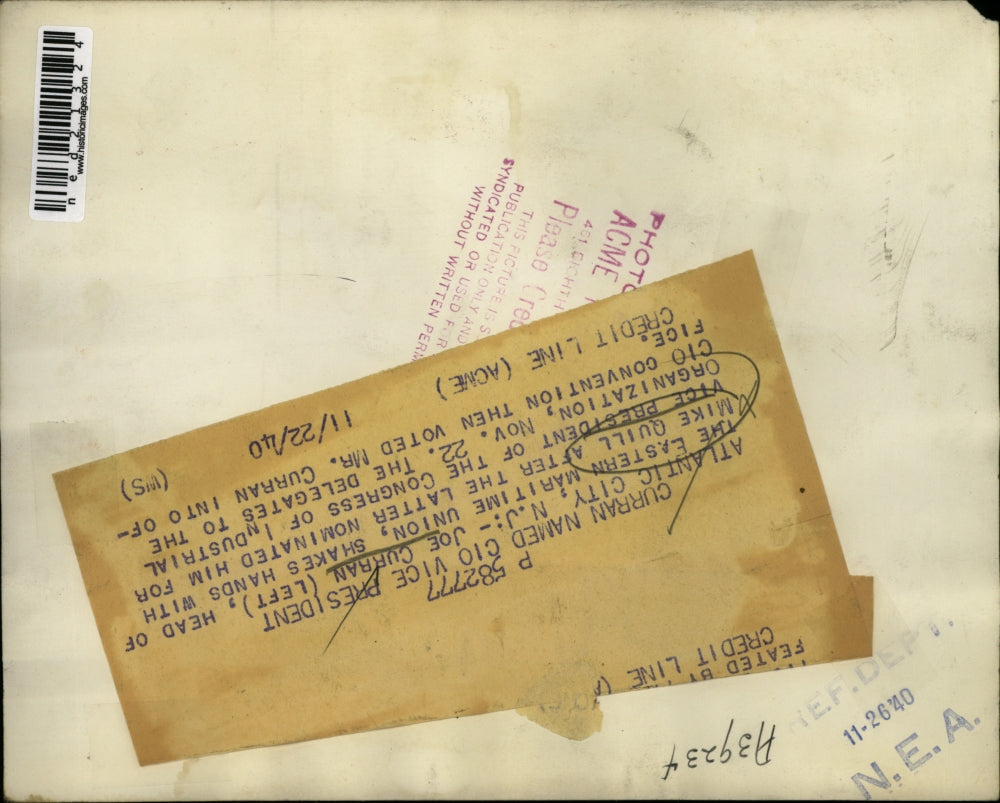 ned21324
www.historicimages.com
PHOTO
ACME
461 EIGHTH
Please Cred
THIS PICTURE IS S
PUBLICATION ONLY AND
SYNDICATED OR USED FOR
WITHOUT WRITTEN PERM
P 582777
CURRAN NAMED CIO VICE PRESIDENT
ATLANTIC CITY, N.J:- JOE CURRAN (LEFT), HEAD OF
THE EASTERN MARITIME UNION, SHAKES HANDS WITH
MIKE QUILL AFTER THE LATTER NOMINATED HIM FOR
VICE PRESIDENT OF THE CONGRESS OF INDUSTRIAL
ORGANIZATION, NOV. 22. THE DELEGATES TO THE
CIO CONVENTION THEN VOTED MR. CURRAN INTO OF-
FICE.
CREDIT LINE (ACME) 11/22/40 (WS)
FEATED BY
CREDIT LINE (A
A39234
REF. DEPT.
11-26'40
N.E.A.